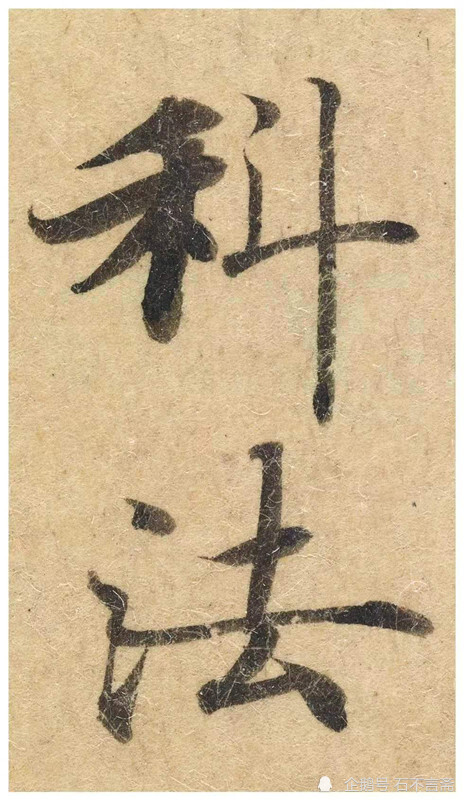 科法
企鹅号 石不言斋